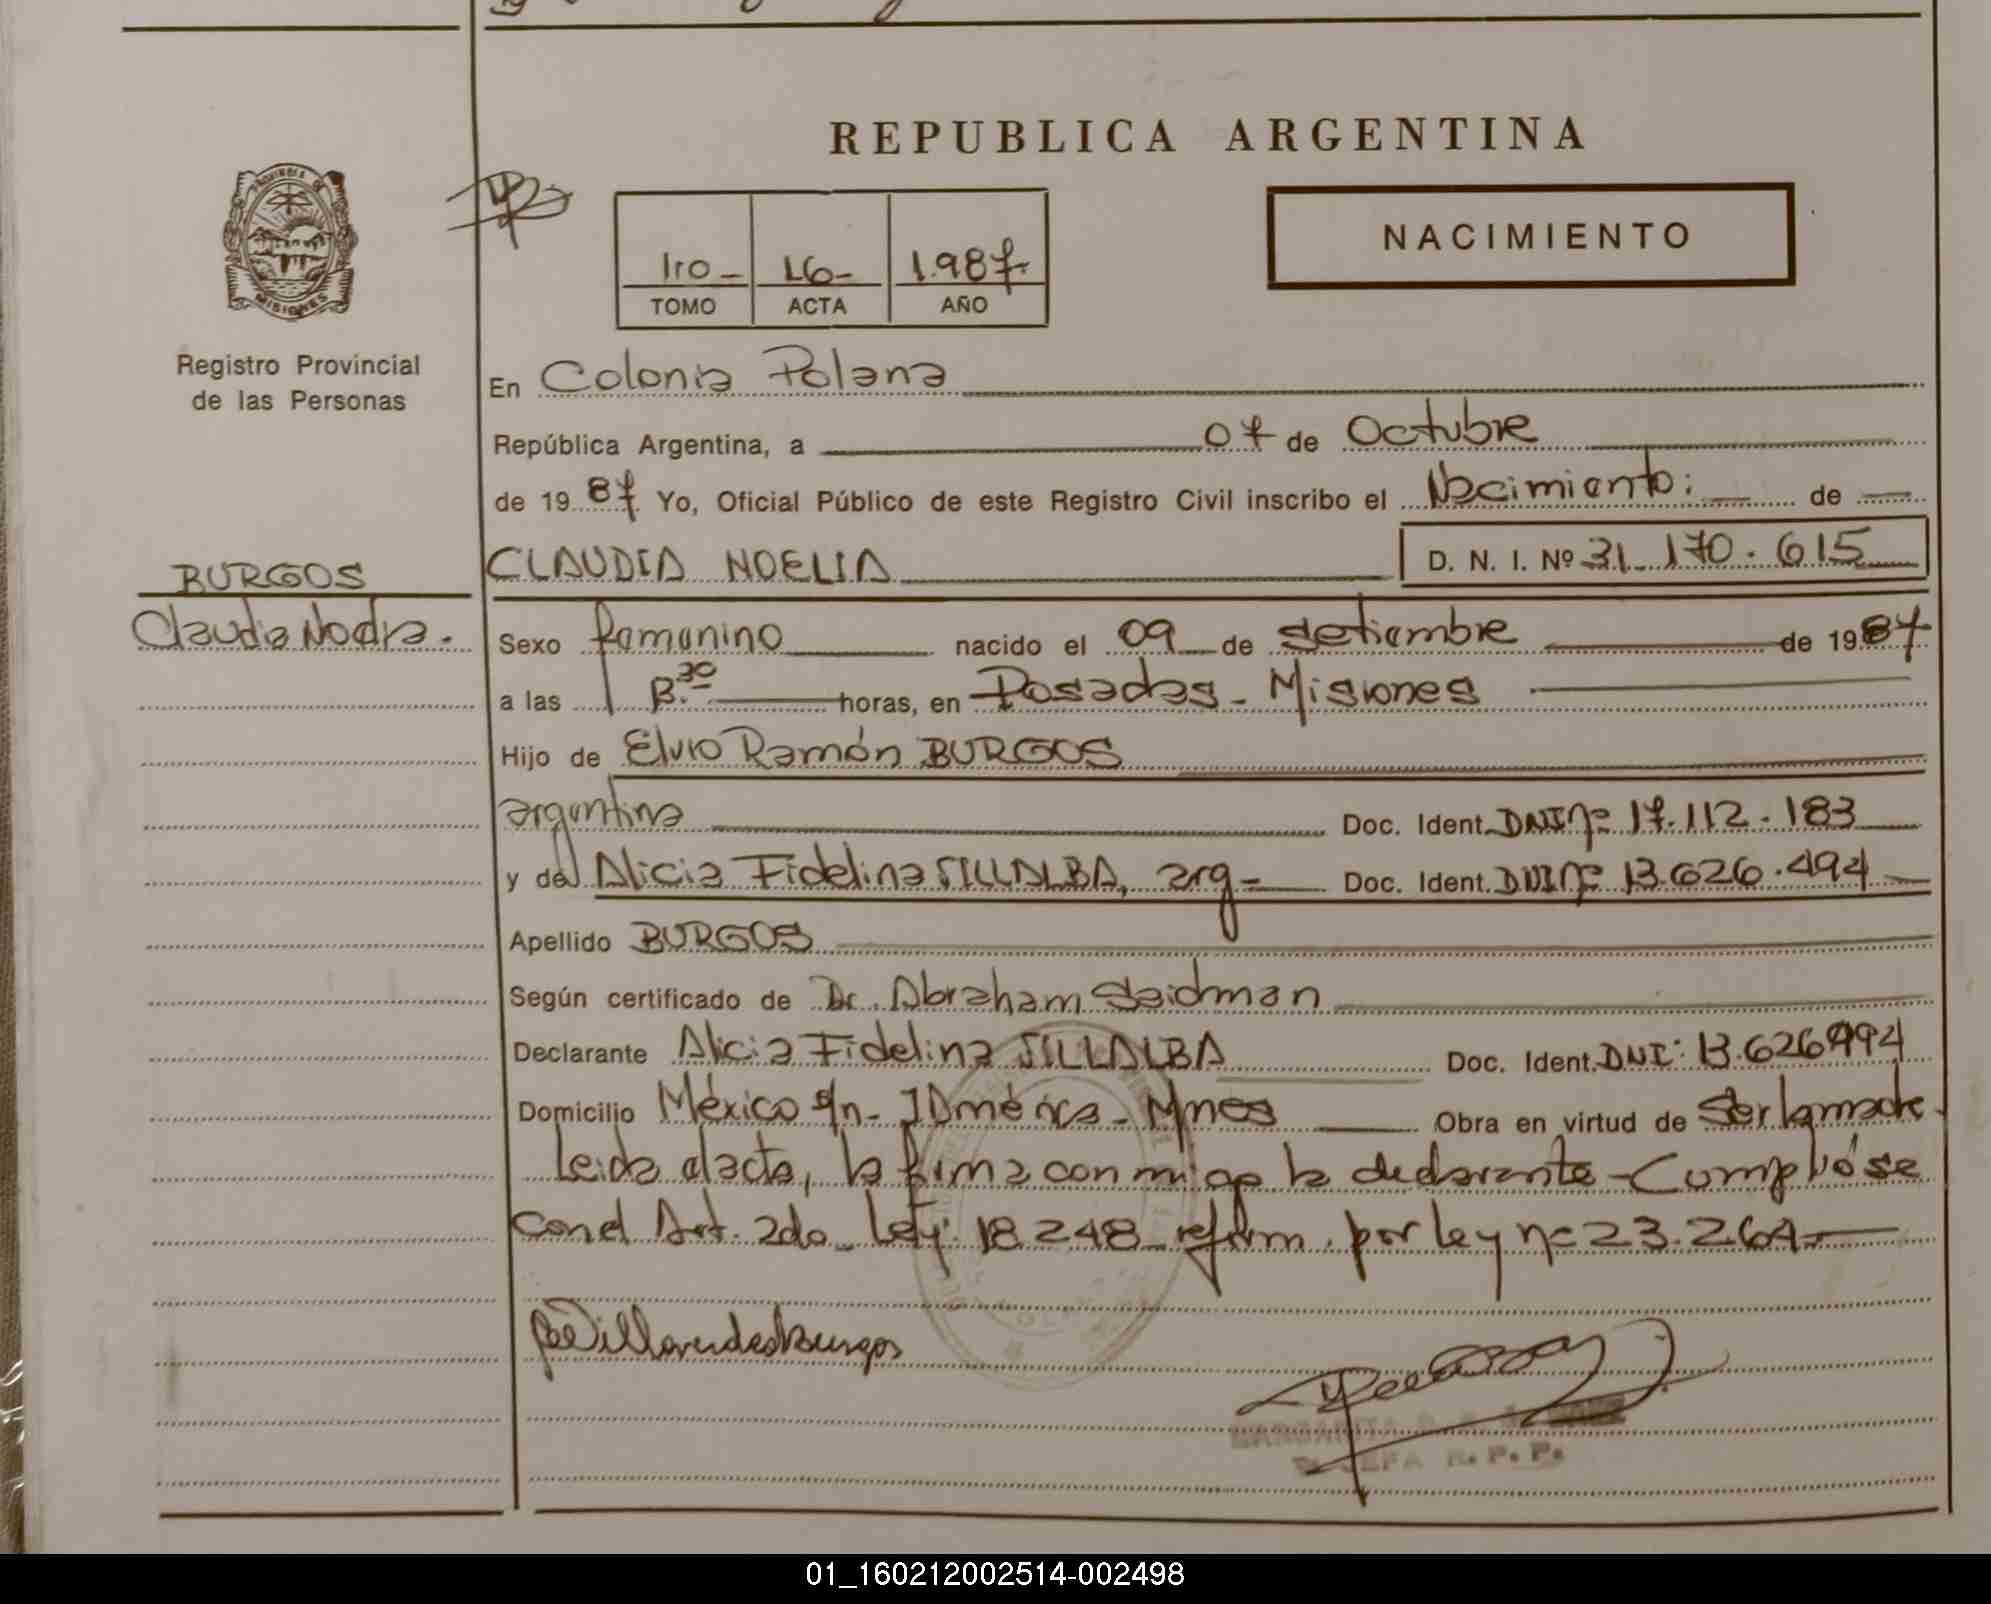 REPUBLICA ARGENTINA
PROVINCIA DE
MISIONES
NACIMIENTO
1ro - 16 - 1.987-
TOMO ACTA AÑO
Registro Provincial
de las Personas
En Colonia Polana
República Argentina, a 07 de Octubre
de 1987 Yo, Oficial Público de este Registro Civil inscribo el Nacimiento: de
BURGOS
CLAUDIA NOELIA D. N. I. Nº 31.170.615
Claudia Noelia.
Sexo femenino nacido el 09 de Setiembre de 1987
a las 13.30 horas, en Posadas - Misiones
Hijo de Elvio Ramón BURGOS
argentina Doc. Ident. DNI nº 17.112.183
y de Alicia Fidelina VILLALBA, arg- Doc. Ident. DNI nº 13.626.494
Apellido BURGOS
Según certificado de Dr. Abraham Saidman
Declarante Alicia Fidelina VILLALBA Doc. Ident. DNI: 13.626494
Domicilio México s/n - Mnes Obra en virtud de Ser la madre.
Leida el acta, la firma conmigo la declarante - Cumplióse
con el Art. 2do Ley: 18.248 reform. por ley nº 23.264
JEFA R. P. P.
01_160212002514-002498